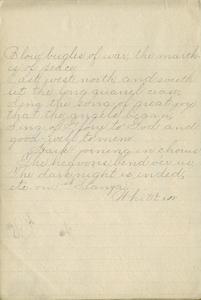 Blow bugles of war, the march-
es of peace,
East west north and south
let the long quarrel cease,
Sing the song of great joy
that the angels began,
Sing of Glory to God and
good-will to men.
Hark joining in chorus
The heavens bend oer us
The dark night is ended,
etc on Stanza
Whittier